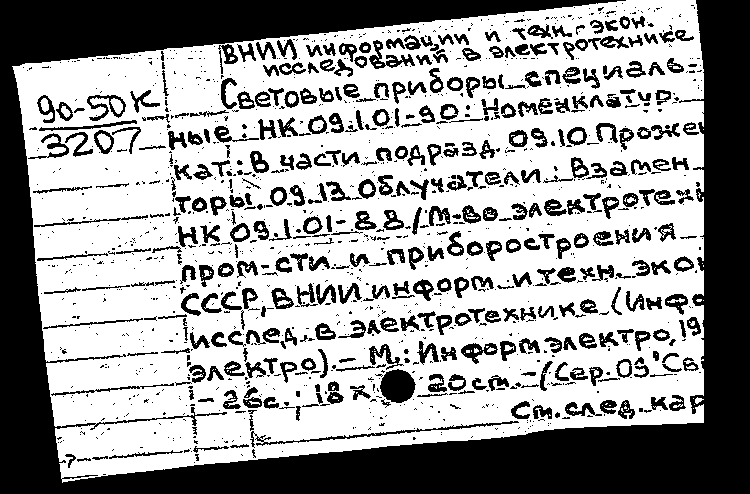 ВНИИ информации и техн.-экон.
исследований в электротехнике
90-50К
3207
Световые приборы специаль-
ные: НК 09.1.01-90: Номенклатур.
кат.: В части подразд. 09.10 Прожек
торы. 09.13 Облучатели: Взамен
НК 09.1.01-88/М-во электротехн
пром-сти и приборостроения
СССР, ВНИИ информ. и техн. экон
исслед. в электротехнике (Инфо
электро).- М.: Информэлектро, 19
- 26с.; 18х 20 ст. -(Сер. 09 "Св
См. след. кар